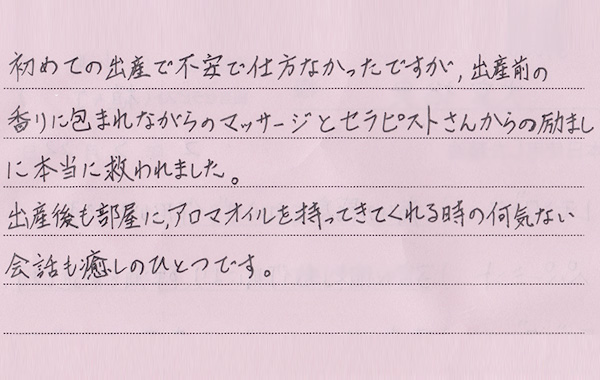 初めての出産で不安で仕方なかったですが、出産前の
香りに包まれながらのマッサージとセラピストさんからの励まし
に本当に救われました。
出産後も部屋に、アロマオイルを持ってきてくれる時の何気ない
会話も癒しのひとつです。